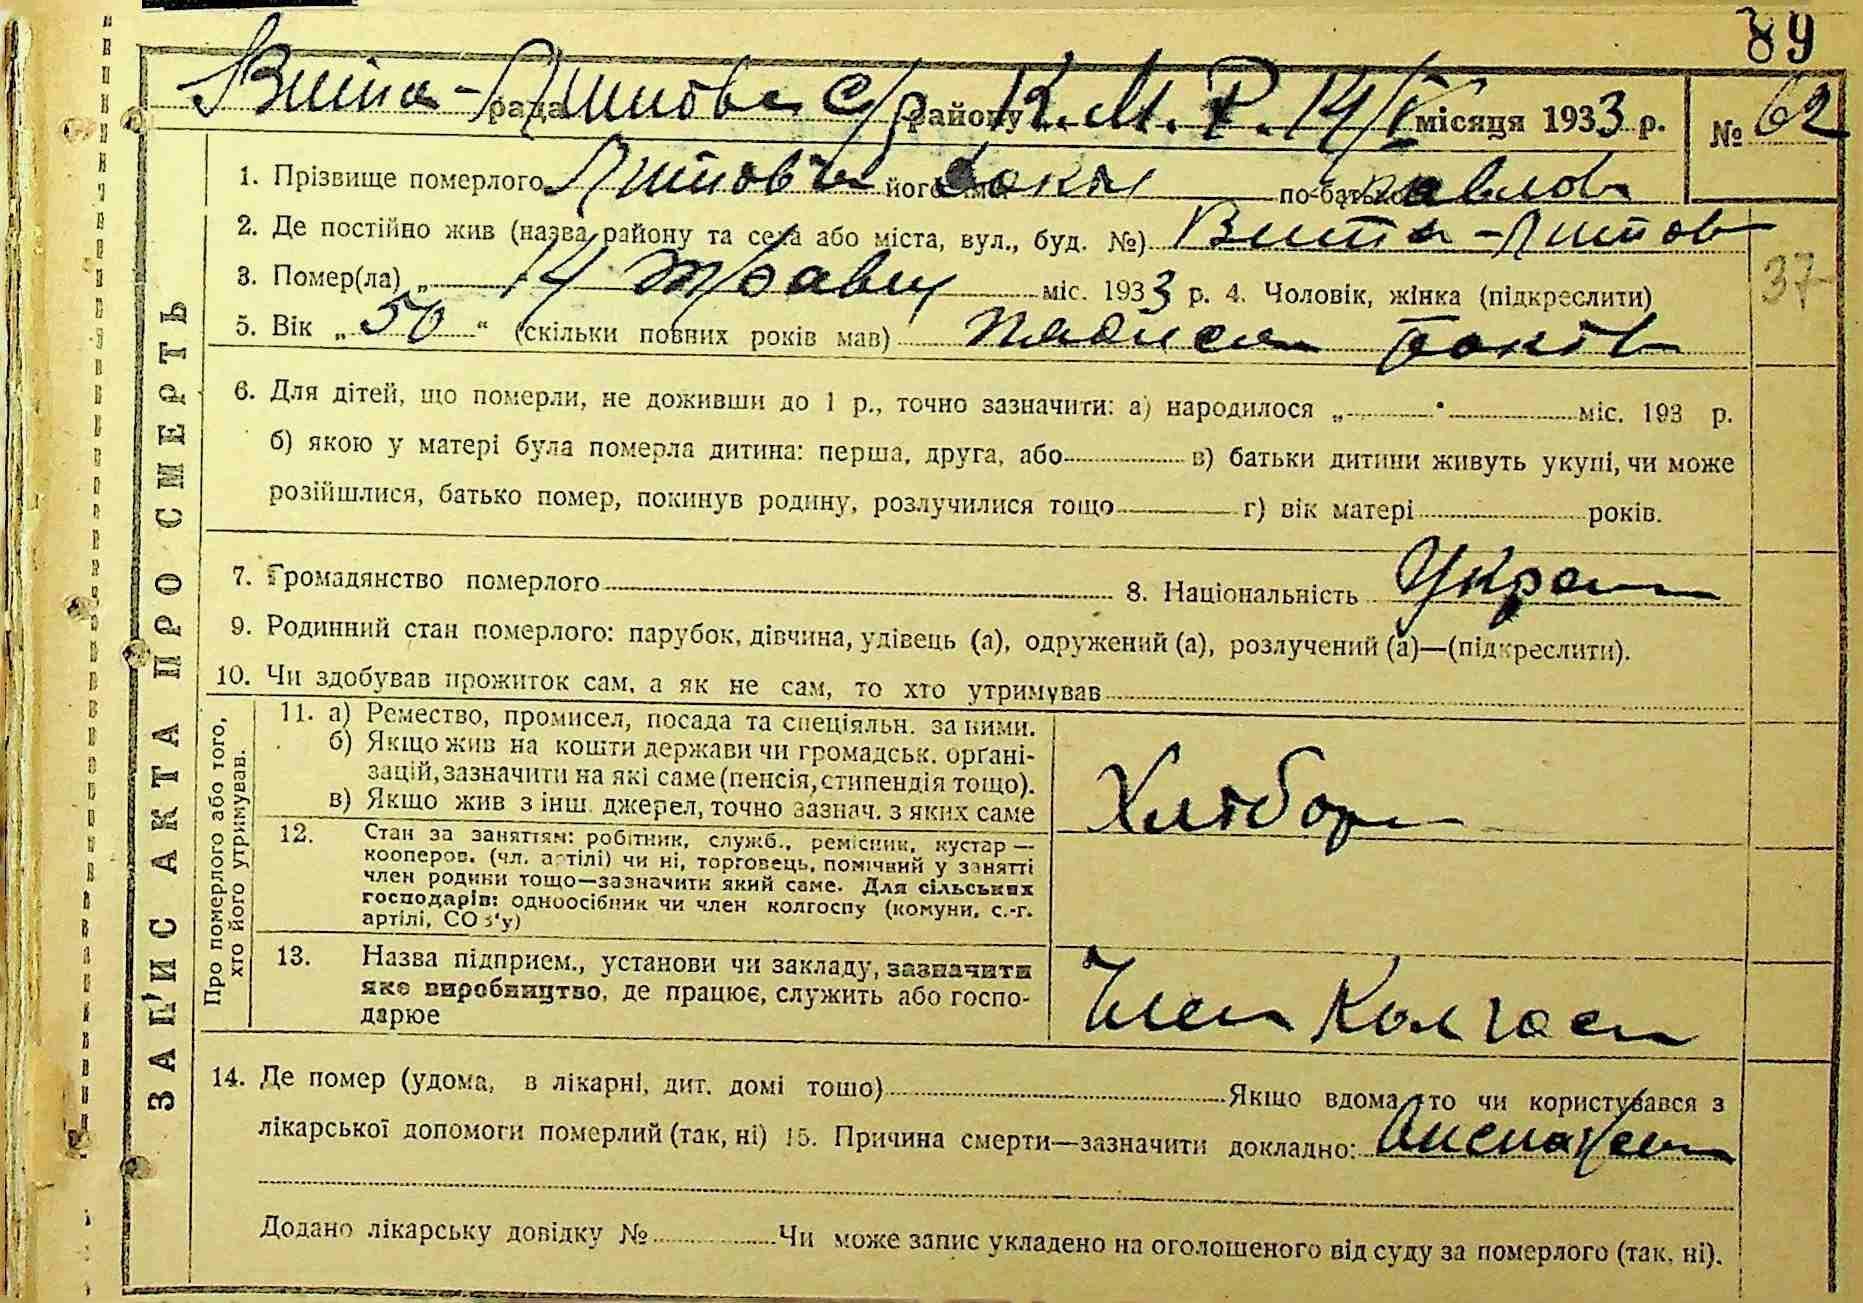 89
Вита-Литовс рада с/р району К.М.Р. 14/V місяця 1933 р. № 62
1. Прізвище померлого його ім'я по-батькові Павлов
2. Де постійно жив (назва району та села або міста, вул., буд. №) Вита-Литов
37
3. Помер(ла) „ 14 травня міс. 1933 р. 4. Чоловік, жінка (підкреслити)
5. Вік „ 50 “ (скільки повних років мав) років
6. Для дітей, що померли, не доживши до 1 р., точно зазначити: а) народилося „ “ міс. 193 р.
б) якою у матері була померла дитина: перша, друга, або в) батьки дитини живуть укупі, чи може
розійшлися, батько помер, покинув родину, розлучилися тощо г) вік матері років.
7. Громадянство померлого 8. Національність Украин
9. Родинний стан померлого: парубок, дівчина, удівець (а), одружений (а), розлучений (а)—(підкреслити).
10. Чи здобував прожиток сам, а як не сам, то хто утримував
ЗАПИС АКТА ПРО СМЕРТЬ
Про померлого або того,
хто його утримував.
11. а) Ремество, промисел, посада та спеціяльн. за ними.
б) Якщо жив на кошти держави чи громадськ. орґані-
зацій, зазначити на які саме (пенсія, стипендія тощо).
в) Якщо жив з інш. джерел, точно зазнач. з яких саме
Хлібор
12. Стан за заняттям: робітник, служб., ремісник, кустар —
кооперов. (чл. артілі) чи ні, торговець, помічний у занятті
член родини тощо—зазначити який саме. Для сільських
господарів: одноосібник чи член колгоспу (комуни, с.-г.
артілі, СОЗ'у)
13. Назва підприєм., установи чи закладу, зазначити
яке виробництво, де працює, служить або госпо-
дарює
Член Колгосп
14. Де помер (удома, в лікарні, дит. домі тощо) Якщо вдома, то чи користувався з
лікарської допомоги померлий (так, ні) 15. Причина смерти—зазначити докладно:
Додано лікарську довідку № Чи може запис укладено на оголошеного від суду за померлого (так, ні).